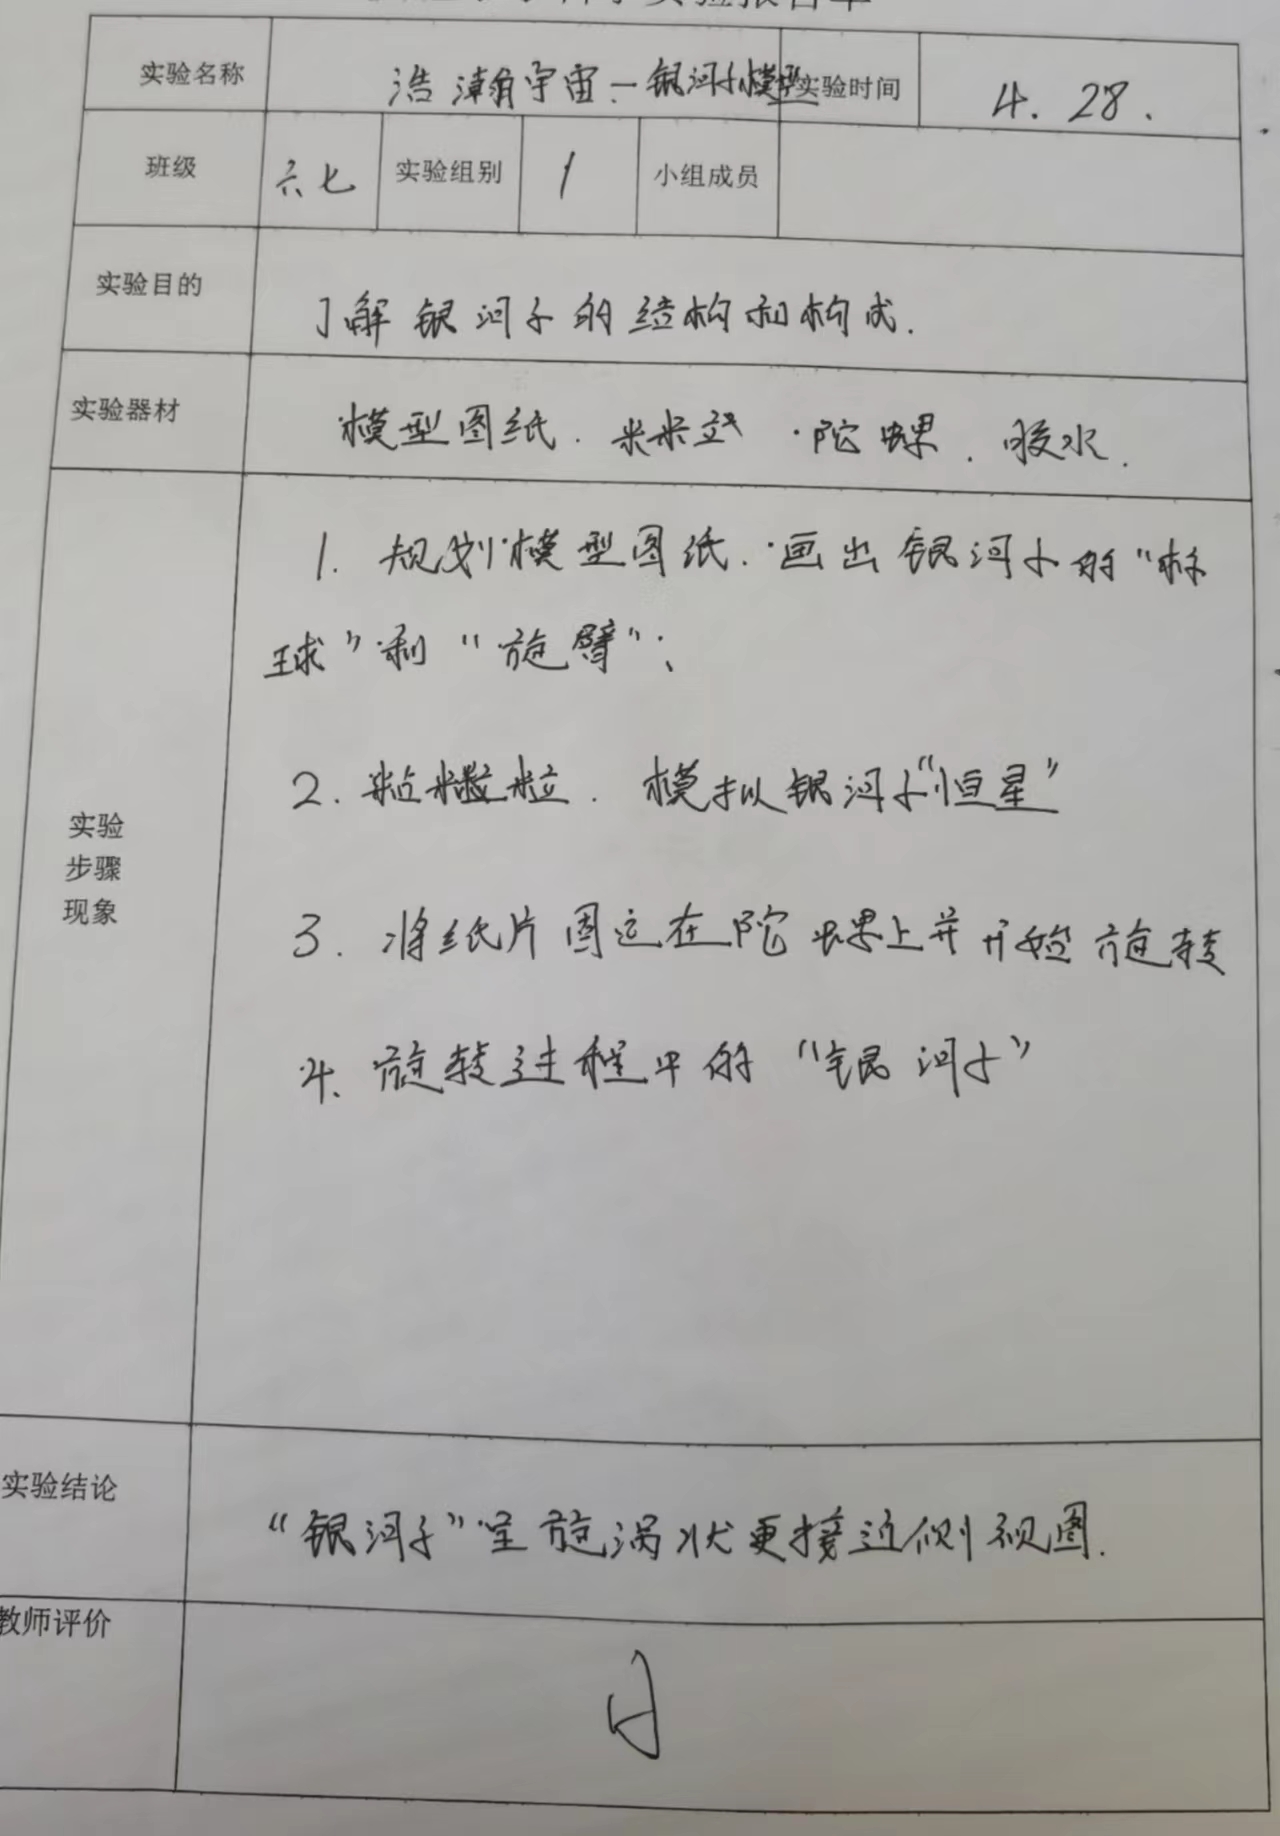 实验报告单
实验名称 浩瀚宇宙—银河系模型 实验时间 4.28.
班级 六七 实验组别 1 小组成员
实验目的 了解银河系的结构和构成.
实验器材 模型图纸.米粒.陀螺.胶水.
1. 规划模型图纸.画出银河系的“核
球”和“旋臂”;
2. 粘米粒.模拟银河系“恒星”
实验
步骤
现象
3. 将纸片固定在陀螺上并开始旋转
4. 旋转过程中的“银河系”
实验结论 “银河系”呈旋涡状更接近侧视图.
教师评价